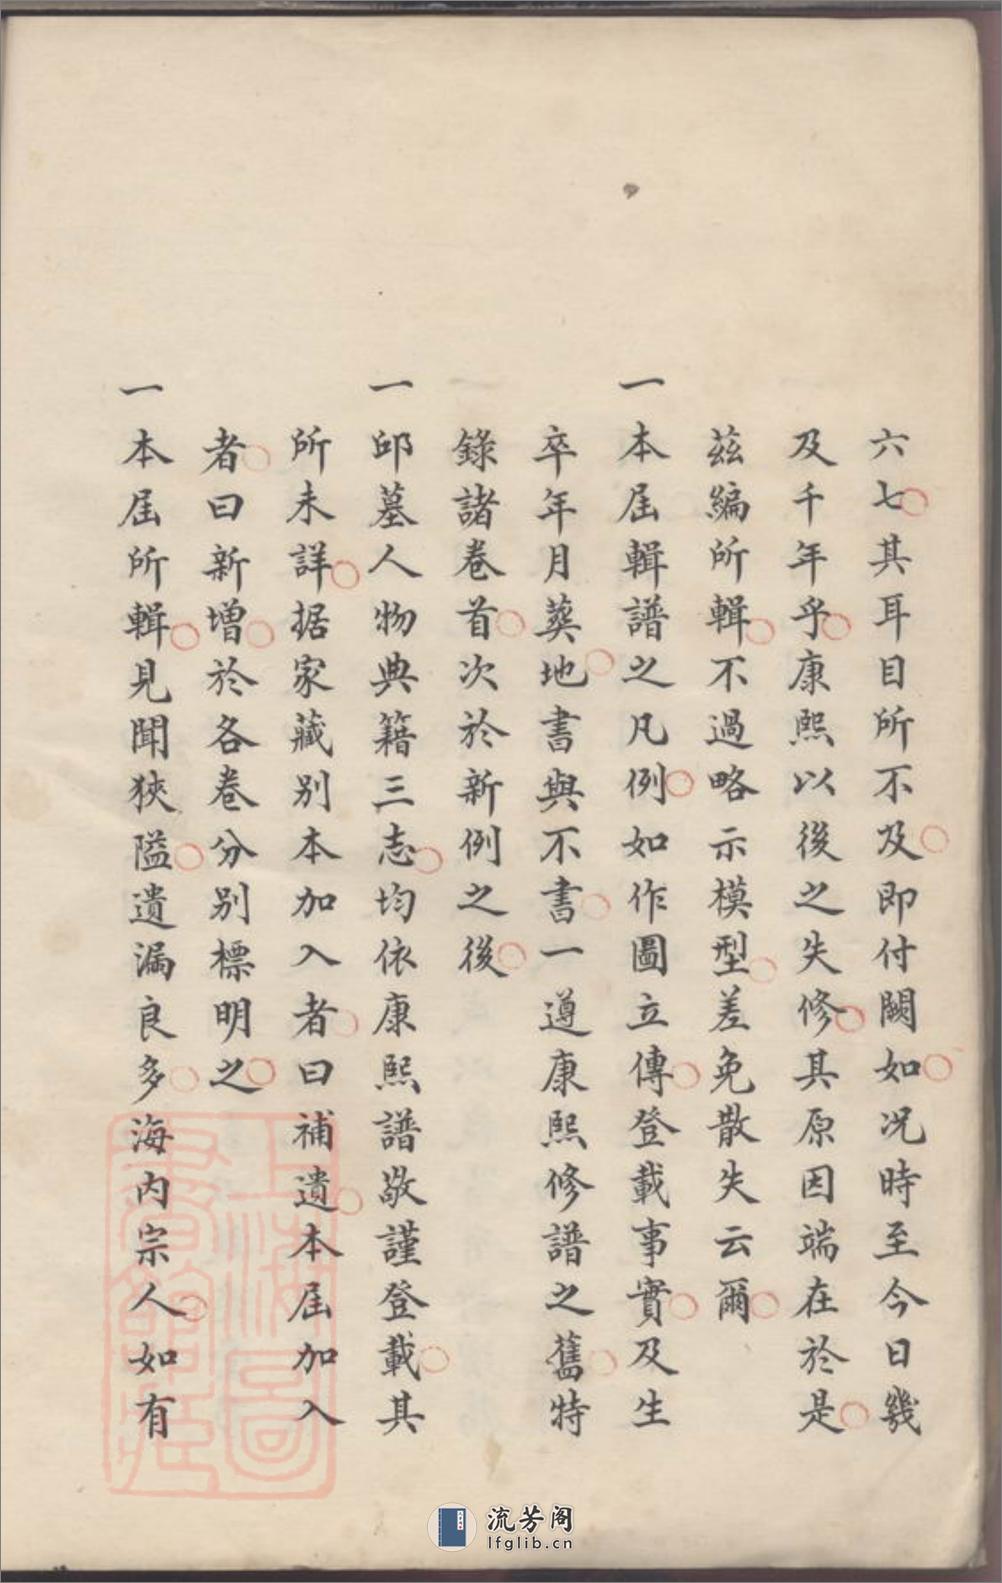 六七其耳目所不及即付闕如况時至今日幾
及千年乎康熙以後之失修其原因端在於是
茲編所輯不過略示模型差免散失云爾
一本屆輯譜之凡例如作圖立傳登載事實及生
卒年月葬地書與不書一遵康熙修譜之舊特
錄諸卷首次於新例之後
一邱墓人物典籍三志均依康熙譜敬謹登載其
所未詳据家藏別本加入者曰補遺本屆加入
者曰新增於各卷分別標明之
一本屆所輯見聞狹隘遺漏良多海內宗人如有
上海圖書館藏
流芳阁
lfglib.cn